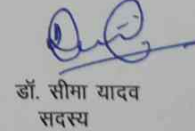 डॉ. सीमा यादव
सदस्य